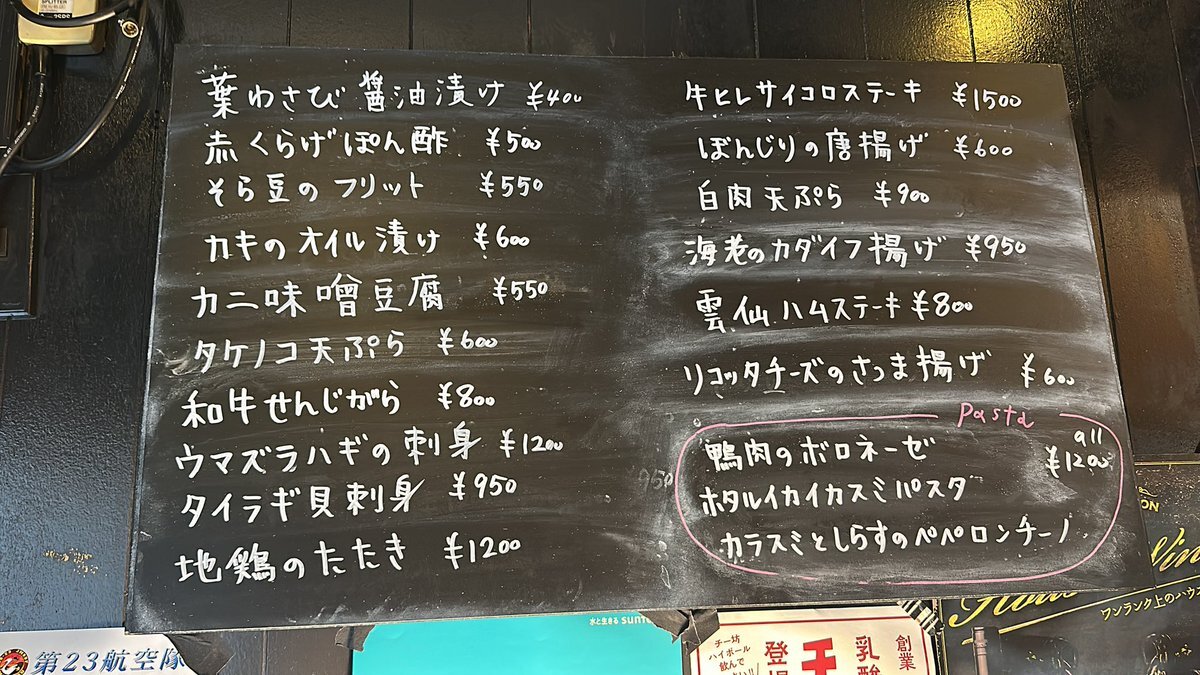 SPLITTER
葉わさび醤油漬け ¥400
赤くらげぽん酢 ¥500
そら豆のフリット ¥550
カキのオイル漬け ¥600
カニ味噌豆腐 ¥550
タケノコ天ぷら ¥600
和牛せんじがら ¥800
ウマズラハギの刺身 ¥1200
タイラギ貝刺身 ¥950
地鶏のたたき ¥1200
牛ヒレサイコロステーキ ¥1500
ぼんじりの唐揚げ ¥600
白肉天ぷら ¥900
海老のカダイフ揚げ ¥950
雲仙ハムステーキ ¥800
リコッタチーズのさつま揚げ ¥600
Pasta
all
鴨肉のボロネーゼ ¥1200
ホタルイカイカスミパスタ
カラスミとしらすのペペロンチーノ
第23航空隊
水と生きる
チー坊
ハイボール
飲んで
創業
乳酸
登場
ワンランク上のハウス